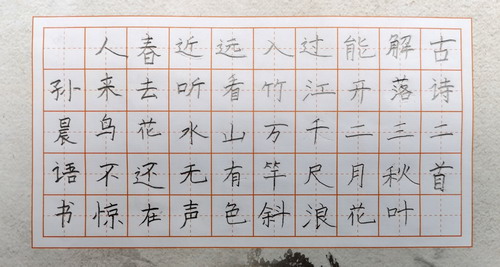 古诗二首
解落三秋叶
能开二月花
过江千尺浪
入竹万竿斜
远看山有色
近听水无声
春去花还在
人来鸟不惊
孙晨语书